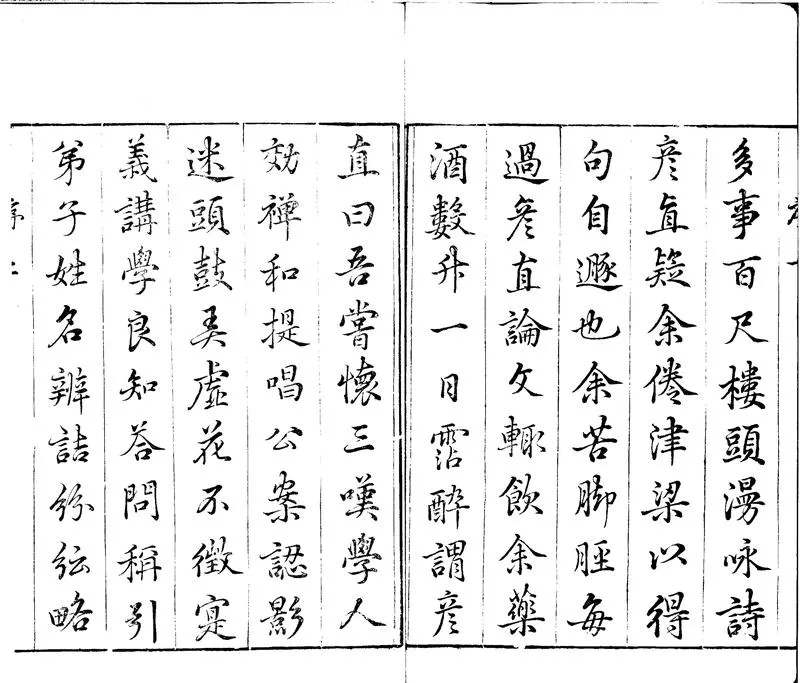 多事百尺樓頭漫咏詩
彦直疑余倦津梁以得
句自遯也余苦脚脛每
過彦直論文輒飲余藥
酒數升一日霑醉謂彦
直曰吾嘗懷三嘆學人
効禪和提唱公案認影
迷頭鼓弄虛花不徵寔
義講學良知答問稱引
弟子姓名辨詰紛紜略